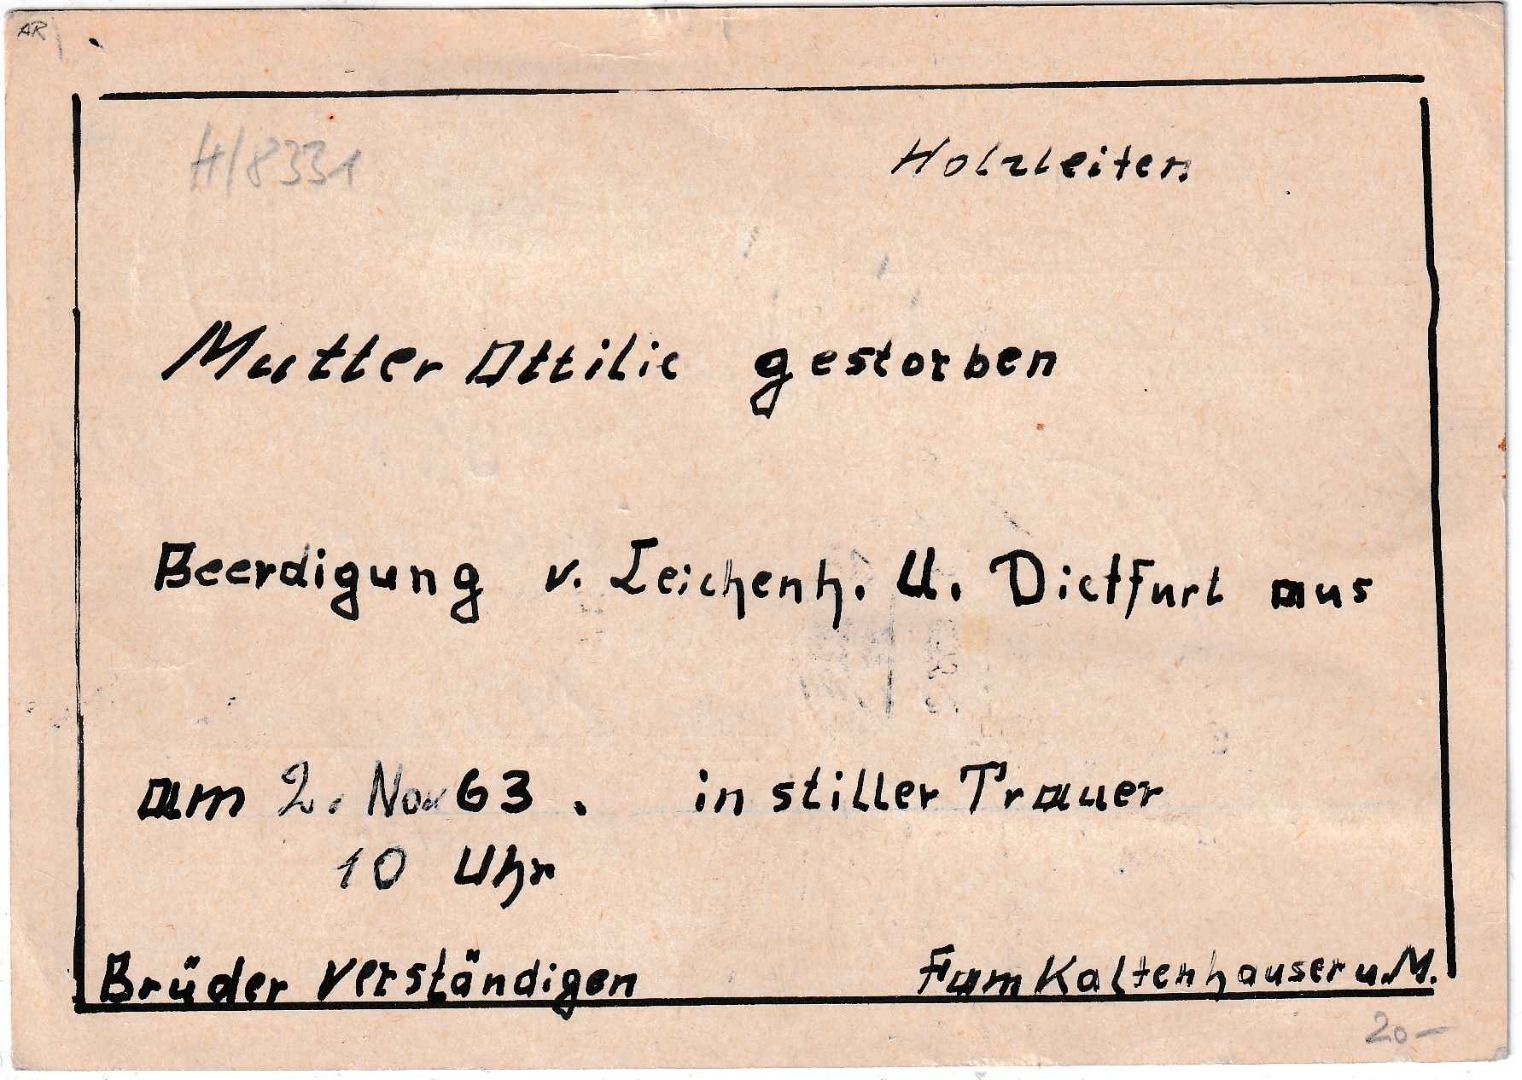 AR
H/8331
Holzleiten
Mutter Ottilie gestorben
Beerdigung v. Leichenh. U. Dietfurt aus
am 2. Nov 63. in stiller Trauer
10 Uhr
Brüder verständigen Fam Kaltenhauser u. M.
20-